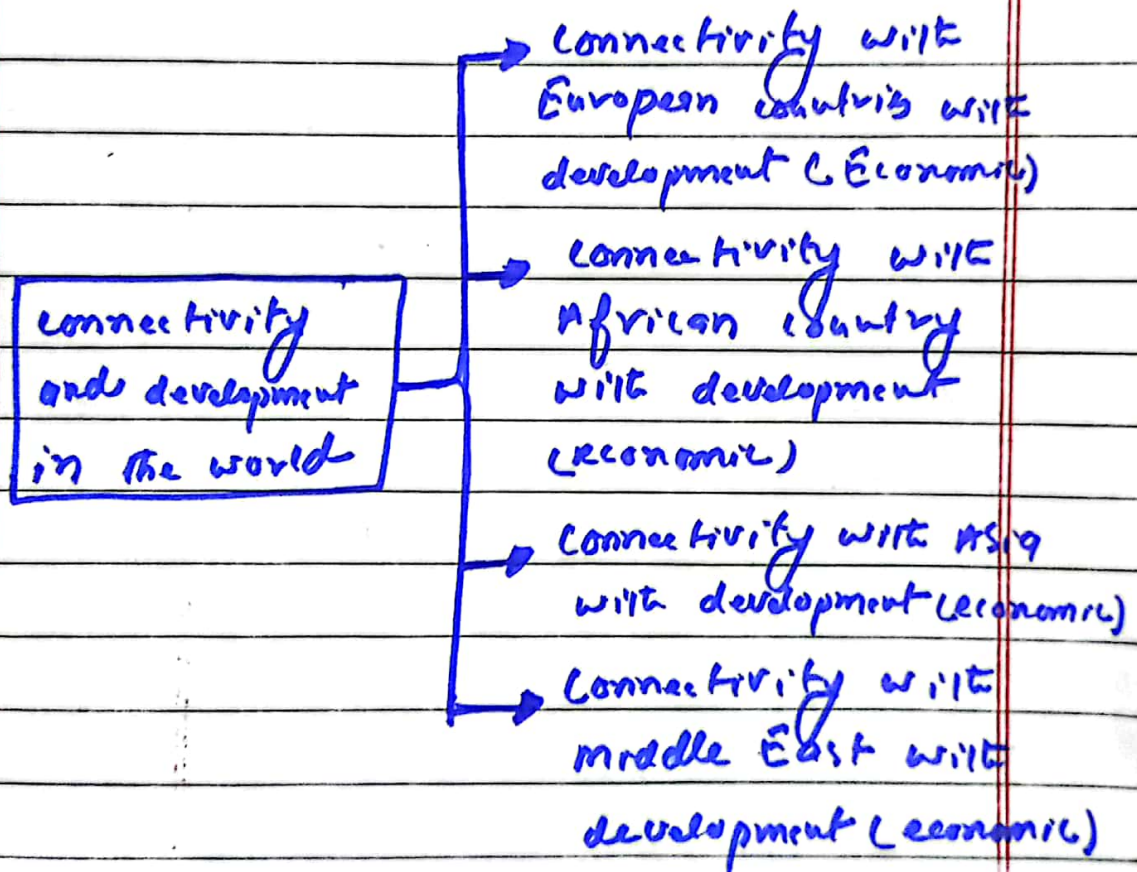 connectivity
and development
in the world
Connectivity with
European countries with
development (Economic)
connectivity with
African country
with development
(economic)
Connectivity with Asia
with development (economic)
Connectivity with
middle East with
development (economic)